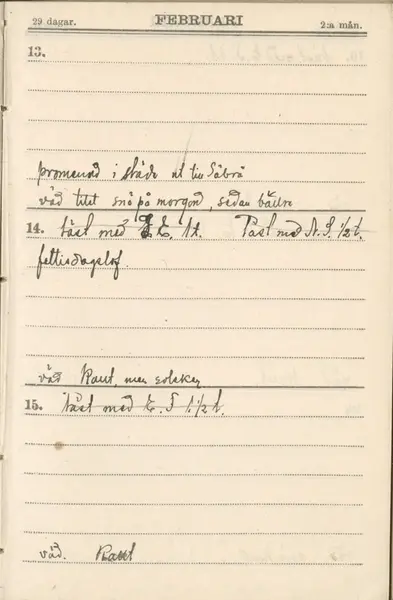 29 dagar. FEBRUARI 2:a mån.
13.
promenad i släde ut till Säbrå
väd litet snö på morgond, sedan bättre
14. läst med E. 1 t. Läst med A. S. 1/2 t.
fettisdagslof.
väd Kallt, men solsken
15. läst med E. F 1 1/2 t.
väd. Kallt